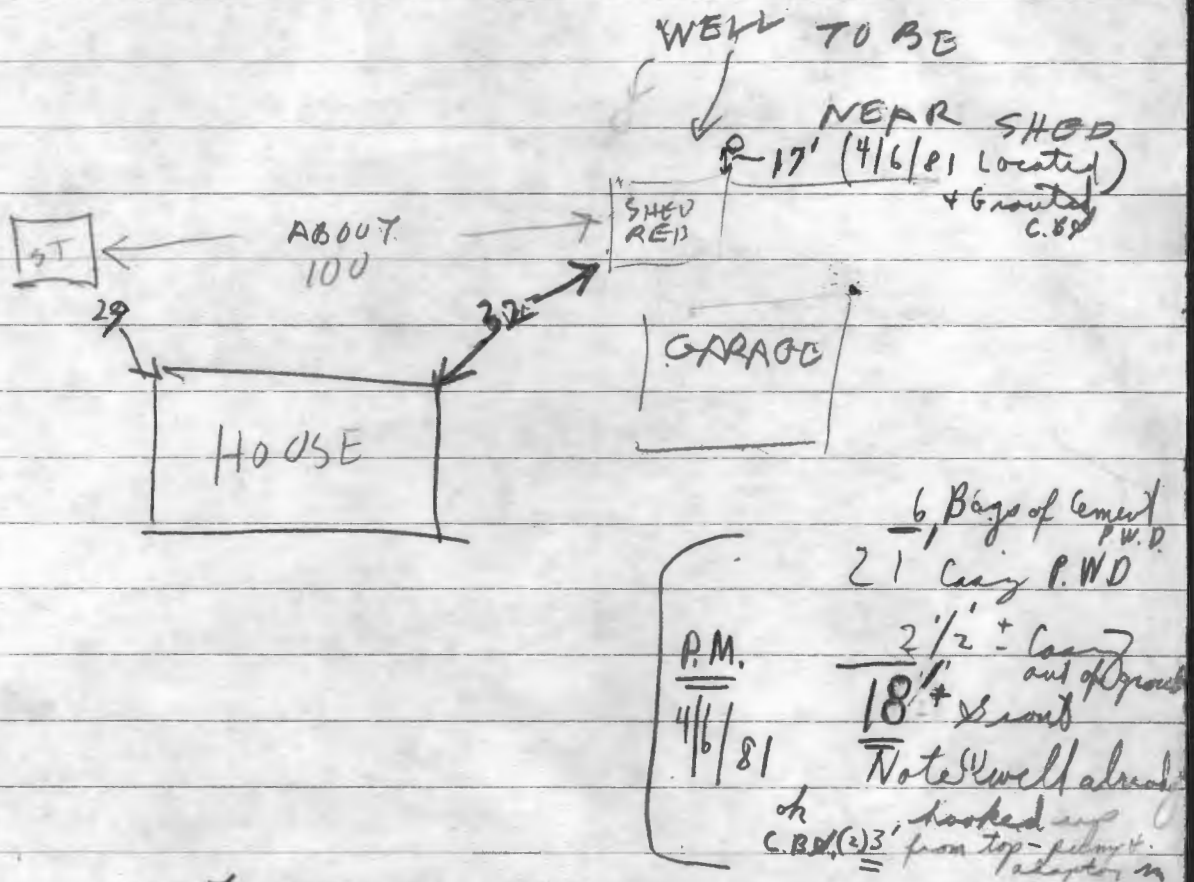 WELL TO BE
NEAR SHED
17' (4/6/81 Located)
+ Grouted
C.B.
SHED
RED
ST
ABOUT
100
29
32
GARAGE
HOUSE
6 Bags of Cement
P.W.D.
21 Casing P.W.D
2 1/2' ± Casing
out of ground
P.M.
18 1/2' ± Grout
4/6/81
Note well already
ok hooked up
C.B. (2) 3' from top -
adaptor